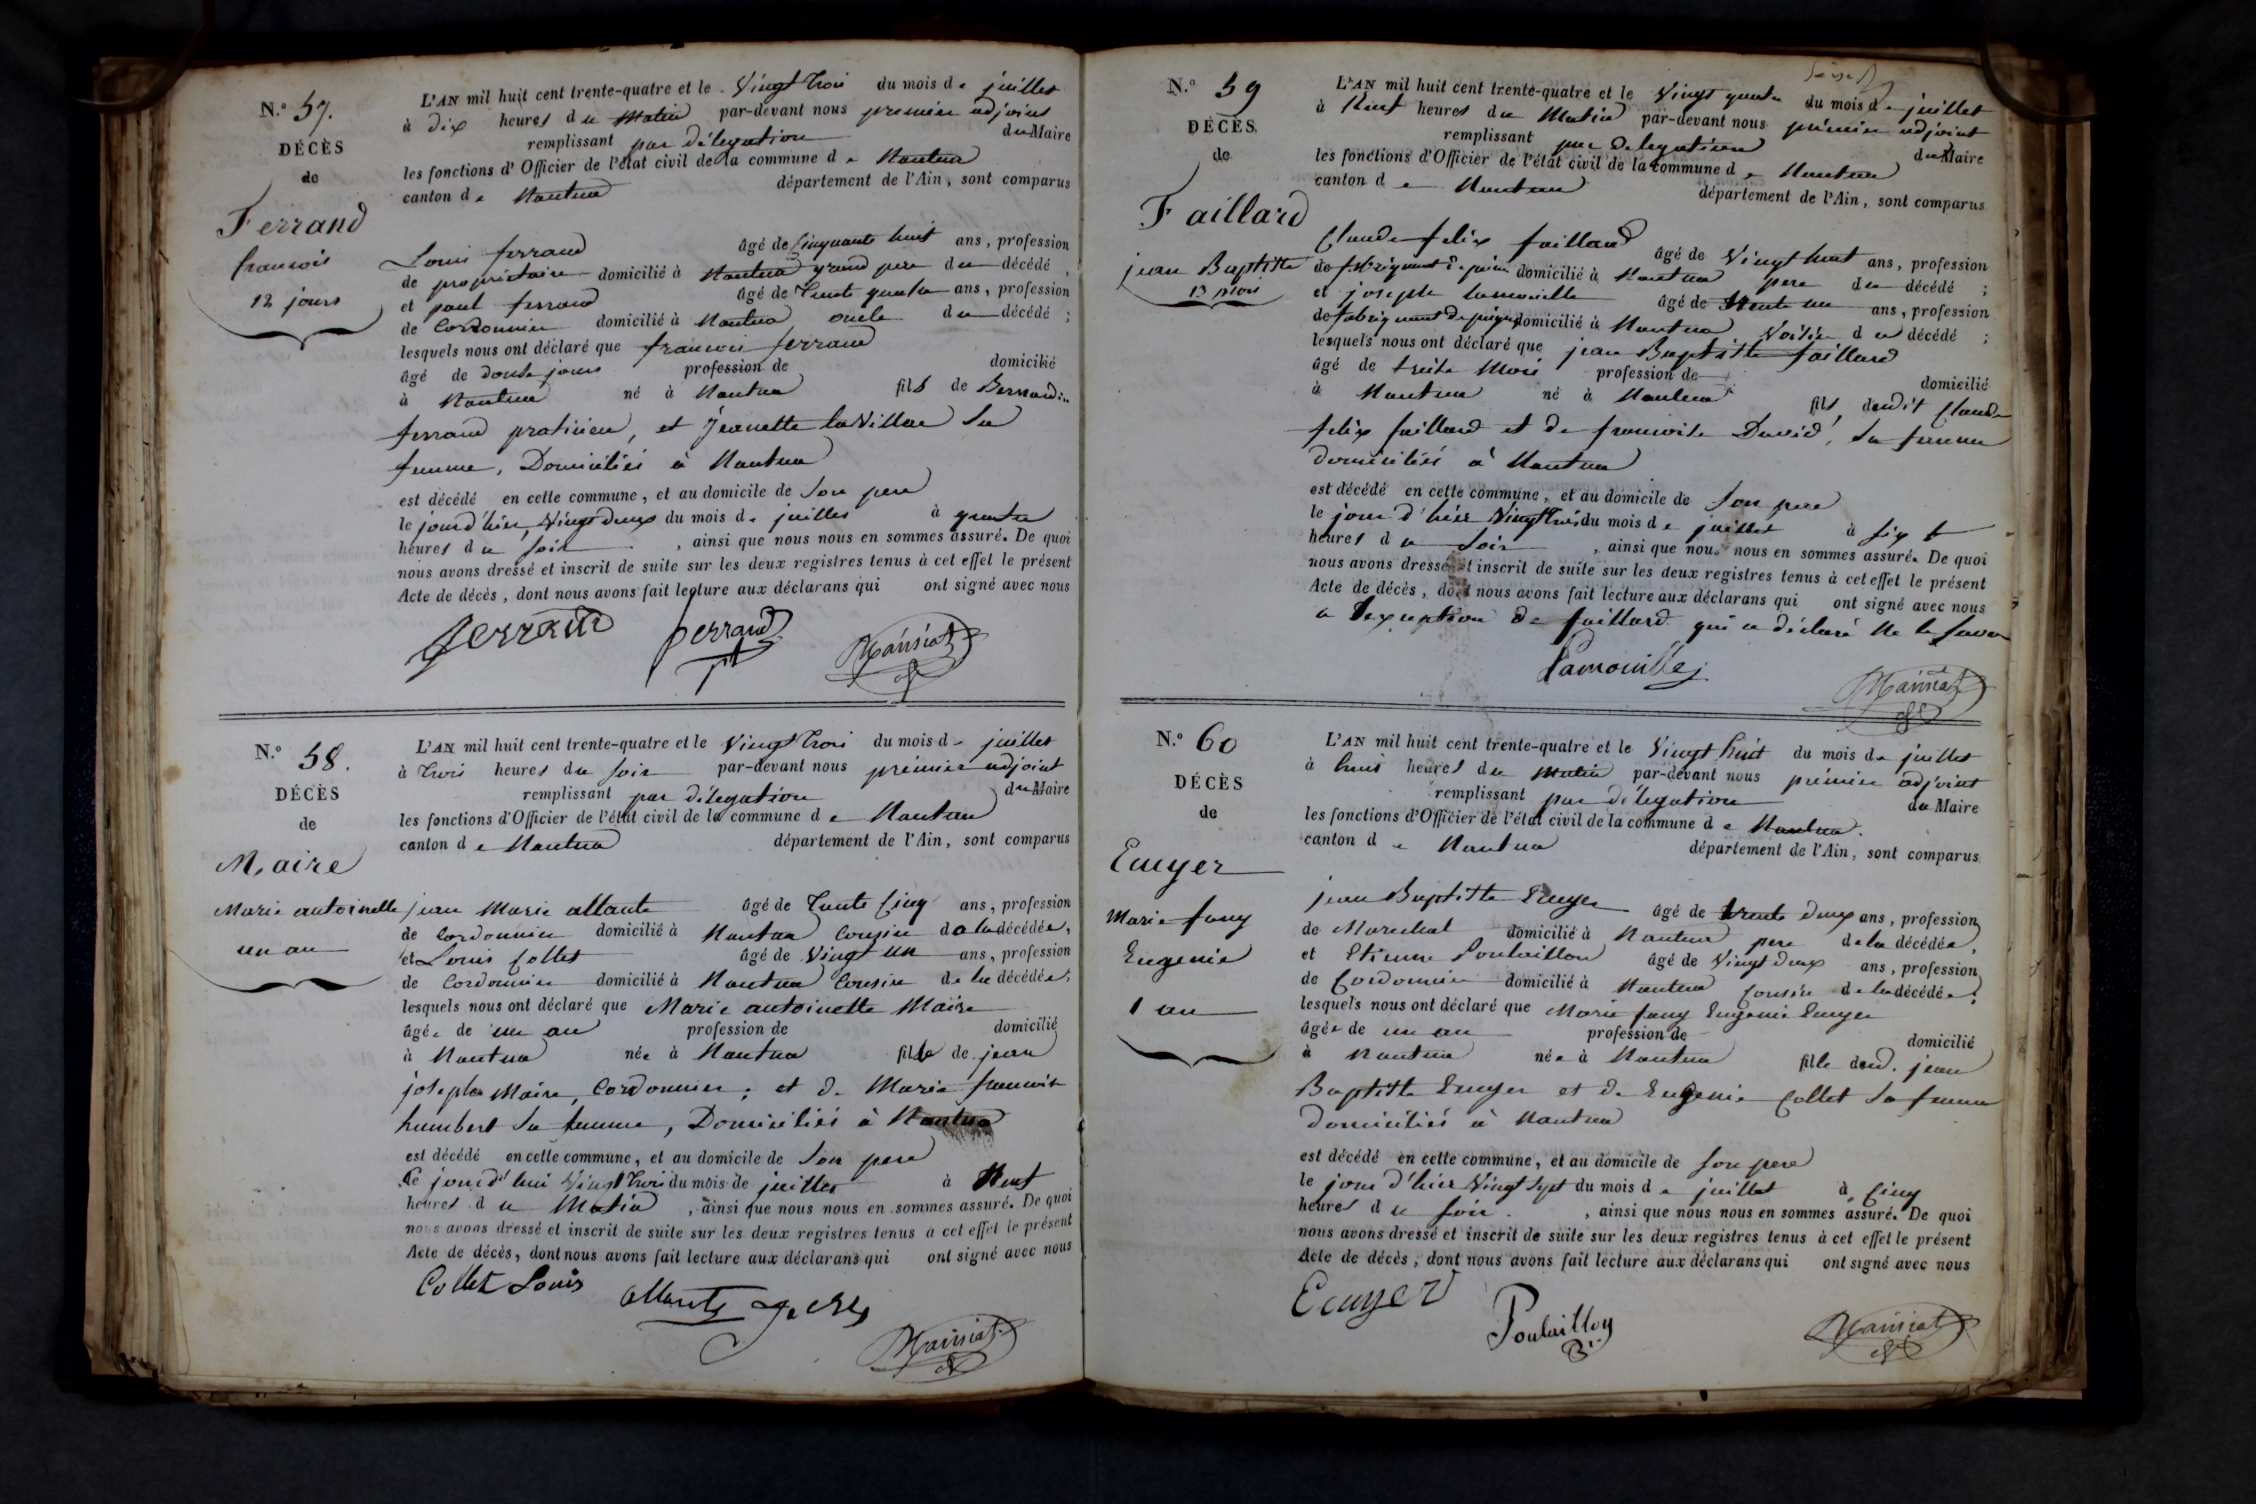 N.° 57.
DÉCÈS
de
Ferrand
francois
12 jours
L'AN mil huit cent trente-quatre et le Vingt trois du mois de juillet
à dix heures du Matin par-devant nous premier adjoint
remplissant par délégation du Maire
les fonctions d'Officier de l'état civil de la commune de Nantua
canton de Nantua département de l'Ain, sont comparus
Louis ferrand âgé de Cinquante huit ans, profession
de propriétaire domicilié à Nantua grand pere du décédé,
et paul ferrand âgé de Trente quatre ans, profession
de Cordonnier domicilié à Nantua oncle du décédé ;
lesquels nous ont déclaré que francois ferrand
âgé de douse jours profession de domicilié
à Nantua né à Nantua fils de Bernardin
ferrand praticien, et Jeanette laVillae Sa
femme, Domiciliés à Nantua
est décédé en cette commune, et au domicile de Son pere
le jour d'hier, Vingt deux du mois de juillet à quatre
heures du Soir, ainsi que nous nous en sommes assuré. De quoi
nous avons dressé et inscrit de suite sur les deux registres tenus à cet effet le présent
Acte de décès, dont nous avons fait lecture aux déclarans qui ont signé avec nous
ferrand ferrand Mansiat
N.° 58.
DÉCÈS
de
Maire
Marie antoinette
un an
L'AN mil huit cent trente-quatre et le Vingt trois du mois de juillet
à trois heures du Soir par-devant nous prémier adjoint
remplissant par délégation du Maire
les fonctions d'Officier de l'état civil de la commune de Nantua
canton de Nantua département de l'Ain, sont comparus
jean Marie allante âgé de Trente Cinq ans, profession
de Cordonnier domicilié à Nantua Cousin de la décédée,
et Louis Collet âgé de Vingt un ans, profession
de Cordonnier domicilié à Nantua Cousin de la décédée ;
lesquels nous ont déclaré que Marie antoinette Maire
âgée de un an profession de domicilié
à Nantua née à Nantua fille de jean
joseph Maire, Cordonnier, et de Marie francoise
humbert Sa femme, Domiciliés à Nantua
est décédé en cette commune, et au domicile de Son pere
Ce jourd'hui Vingt trois du mois de juillet à Neuf
heures du Matin, ainsi que nous nous en sommes assuré. De quoi
nous avons dressé et inscrit de suite sur les deux registres tenus à cet effet le présent
Acte de décès, dont nous avons fait lecture aux déclarans qui ont signé avec nous
Collet Louis allante Mansiat
N.° 59
DÉCÈS
de
Faillard
jean Baptiste
13 mois
L'AN mil huit cent trente-quatre et le Vingt quatre du mois de juillet
à heures du Matin par-devant nous prémier adjoint
remplissant par délégation du Maire
les fonctions d'Officier de l'état civil de la commune de Nantua
canton de Nantua département de l'Ain, sont comparus
Claude felix faillard âgé de Vingt huit ans, profession
de domicilié à Nantua pere du décédé ;
et joseph lamouille âgé de trente un ans, profession
de fabriquant de peignes domicilié à Nantua Voisin du décédé ;
lesquels nous ont déclaré que jean Baptiste faillard
âgé de treise Mois profession de domicilié
à Nantua né à Nantua fils dudit Claude
felix faillard et de francoise David, Sa femme
domiciliés à Nantua
est décédé en cette commune, et au domicile de Son pere
le jour d'hier Vingt trois du mois de juillet à six
heures du Soir, ainsi que nous nous en sommes assuré. De quoi
nous avons dressé et inscrit de suite sur les deux registres tenus à cet effet le présent
Acte de décès, dont nous avons fait lecture aux déclarans qui ont signé avec nous
a l'exception de faillard qui a déclaré Ne le Savoir
Lamouille j. Mansiat
N.° 60
DÉCÈS
de
Ecuyer
Marie fany
Eugenie
1 an
L'AN mil huit cent trente-quatre et le Vingt huit du mois de juillet
à heures du Matin par-devant nous prémier adjoint
remplissant par délégation du Maire
les fonctions d'Officier de l'état civil de la commune de Nantua
canton de Nantua département de l'Ain, sont comparus
jean Baptiste Ecuyer âgé de trente deux ans, profession
de Marechal domicilié à Nantua pere de la décédée,
et Etienne Poulaillon âgé de Vingt deux ans, profession
de Cordonnier domicilié à Nantua Cousin de la décédée ;
lesquels nous ont déclaré que Marie fany Eugenie Ecuyer
âgée de un an profession de domicilié
à Nantua née à Nantua fille dud. jean
Baptiste Ecuyer et de Eugenie Collet Sa femme
domiciliés à Nantua
est décédé en cette commune, et au domicile de Son pere
le jour d'hier Vingt Sept du mois de juillet à Cinq
heures du Soir, ainsi que nous nous en sommes assuré. De quoi
nous avons dressé et inscrit de suite sur les deux registres tenus à cet effet le présent
Acte de décès, dont nous avons fait lecture aux déclarans qui ont signé avec nous
Ecuyer Poulaillon Mansiat